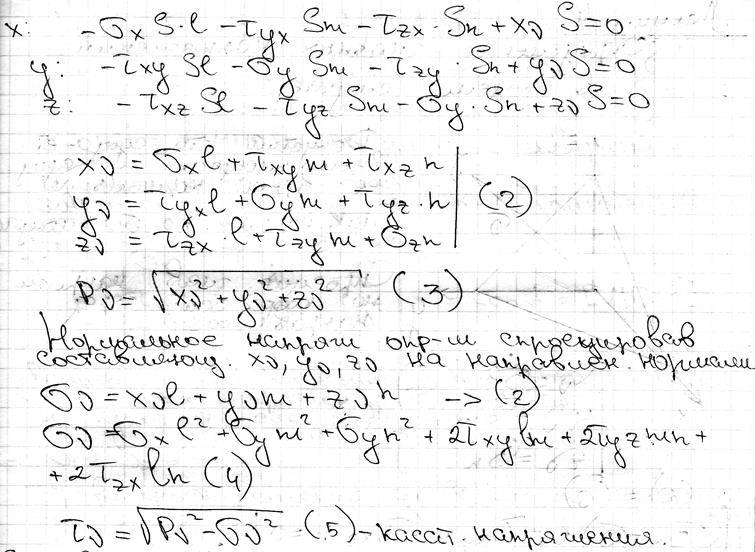 x: -σx S·l - τyx Sm - τzx · Sn + xν S = 0
y: -τxy Sl - σy Sm - τzy · Sn + yν S = 0
z: -τxz Sl - τyz Sm - σy · Sn + zν S = 0
xν = σx l + τxy m + τxz n
yν = τyx l + σy m + τyz · n (2)
zν = τzx · l + τzy m + σz n
Pν = √xν² + yν² + zν² (3)
Нормальное напряж опр-м спроецировав
составляющ. xν, yν, zν на направлен. нормали
σν = xν l + yν m + zν n -> (2)
σν = σx l² + σy m² + σy n² + 2τxy lm + 2τyz mn +
+ 2τzx ln (4)
τν = √Pν² - σν² (5) - касат. напряжения.